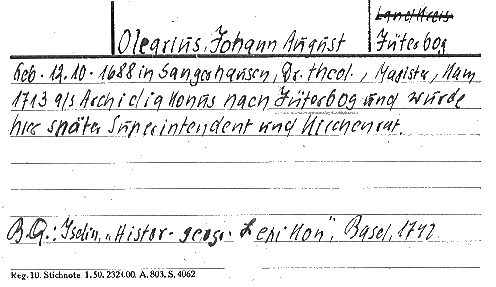 Land/Kreis
Olearius, Johann August Jüterbog
Geb. 12.10.1688 in Sangerhausen, Dr. theol., Magister, kam
1713 als Archidiakonus nach Jüterbog und wurde
hier später Superintendent und Kirchenrat.
B.Q.: Iselin, "Histor.-geogr. Lexikon", Basel, 1742
Reg. 10. Stichnote. 1. 50. 2321.00. A. 803. S. 4062